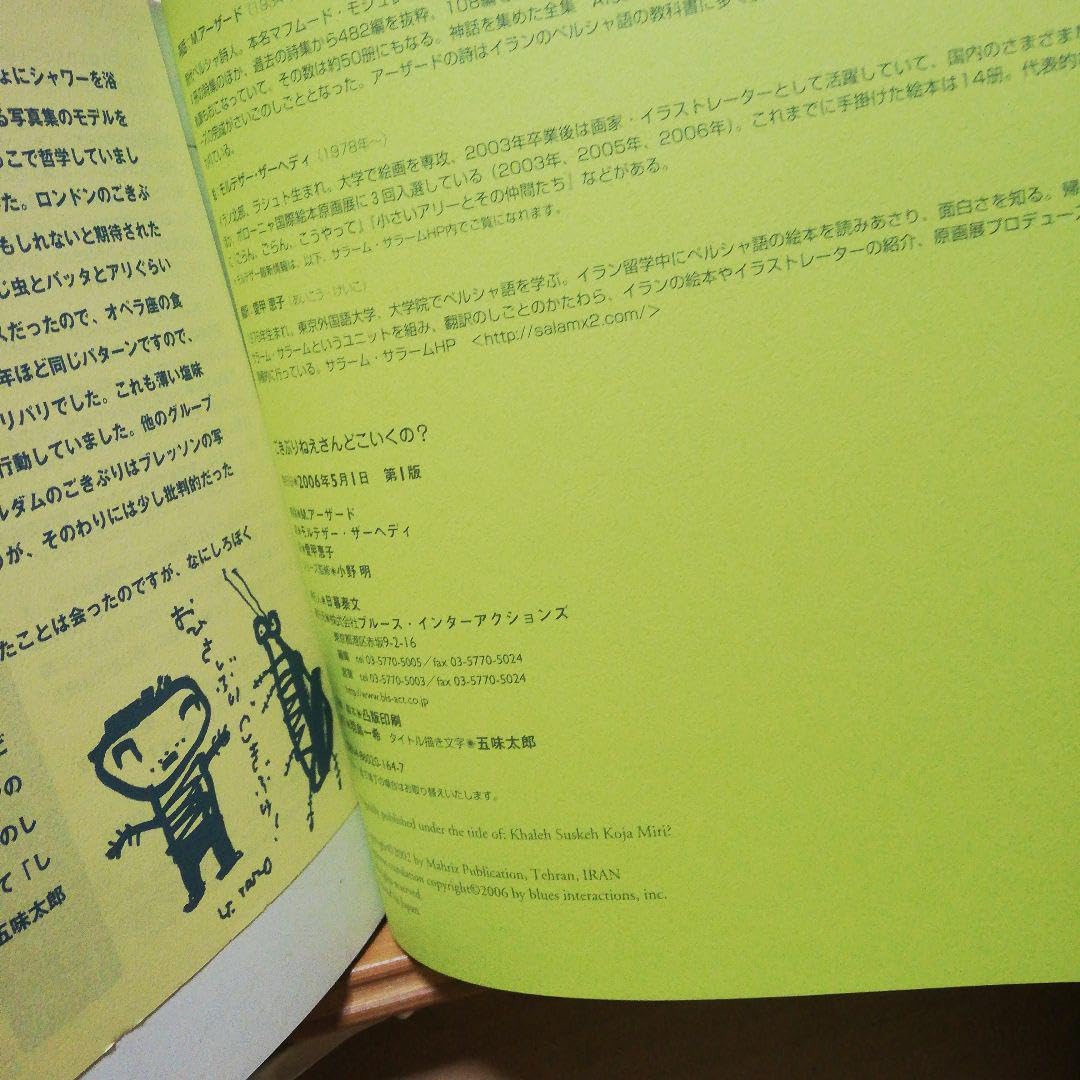 ょにシャワーを浴
る写真集のモデルを
こで哲学していまし
た。ロンドンのごきぶ
もしれないと期待された
じ虫とバッタとアリぐらい
んだったので、オペラ座の食
年ほど同じパターンですので、
リパリでした。これも薄い塩味
行動していました。他のグループ
ルダムのごきぶりはブレッソンの写
が、そのわりには少し批判的だった
たことは会ったのですが、なにしろぼく
おひさしぶり ごきぶり!
の
のし
て「し
五味太郎
M.アーザード
ペルシャ詩人。本名マフムード・モシュ
のほか、過去の詩集から482編を抜粋、108編
もおこなっていて、その数は約50冊にもなる。神話を集めた全集
の完成がさいごのしごととなった。アーザードの詩はイランのペルシャ語の教科書に多く
ている。
モルテザー・ザーヘディ(1978年〜)
イラン北部、ラシュト生まれ。大学で絵画を専攻、2003年卒業後は画家・イラストレーターとして活躍していて、国内のさまざまな
ボローニャ国際絵本原画展に3回入選している(2003年、2005年、2006年)。これまでに手掛けた絵本は14冊。代表的
ごらん、こうやって』『小さいアリーとその仲間たち』などがある。
最新情報は、以下、サラーム・サラームHP内でご覧になれます。
愛甲 恵子(あいこう・けいこ)
生まれ。東京外国語大学、大学院でペルシャ語を学ぶ。イラン留学中にペルシャ語の絵本を読みあさり、面白さを知る。帰
サラーム・サラームというユニットを組み、翻訳のしごとのかたわら、イランの絵本やイラストレーターの紹介、原画展プロデュース
に行っている。サラーム・サラームHP <http://salamx2.com/>
ごきぶりねえさんどこいくの?
2006年5月1日 第1版
M.アーザード
モルテザー・ザーヘディ
愛甲恵子
小野 明
日暮泰文
株式会社ブルース・インターアクションズ
東京都港区赤坂9-2-16
tel 03-5770-5005/fax 03-5770-5024
tel 03-5770-5003/fax 03-5770-5024
http://www.bls-act.co.jp
凸版印刷
一希 タイトル描き文字◉五味太郎
86020-164-7
の場合はお取り替えいたします。
published under the title of: Khaleh Suskeh Koja Miri?
©2002 by Mahriz Publication, Tehran, IRAN
translation copyright©2006 by blues interactions, inc.
reserved.
in Japan